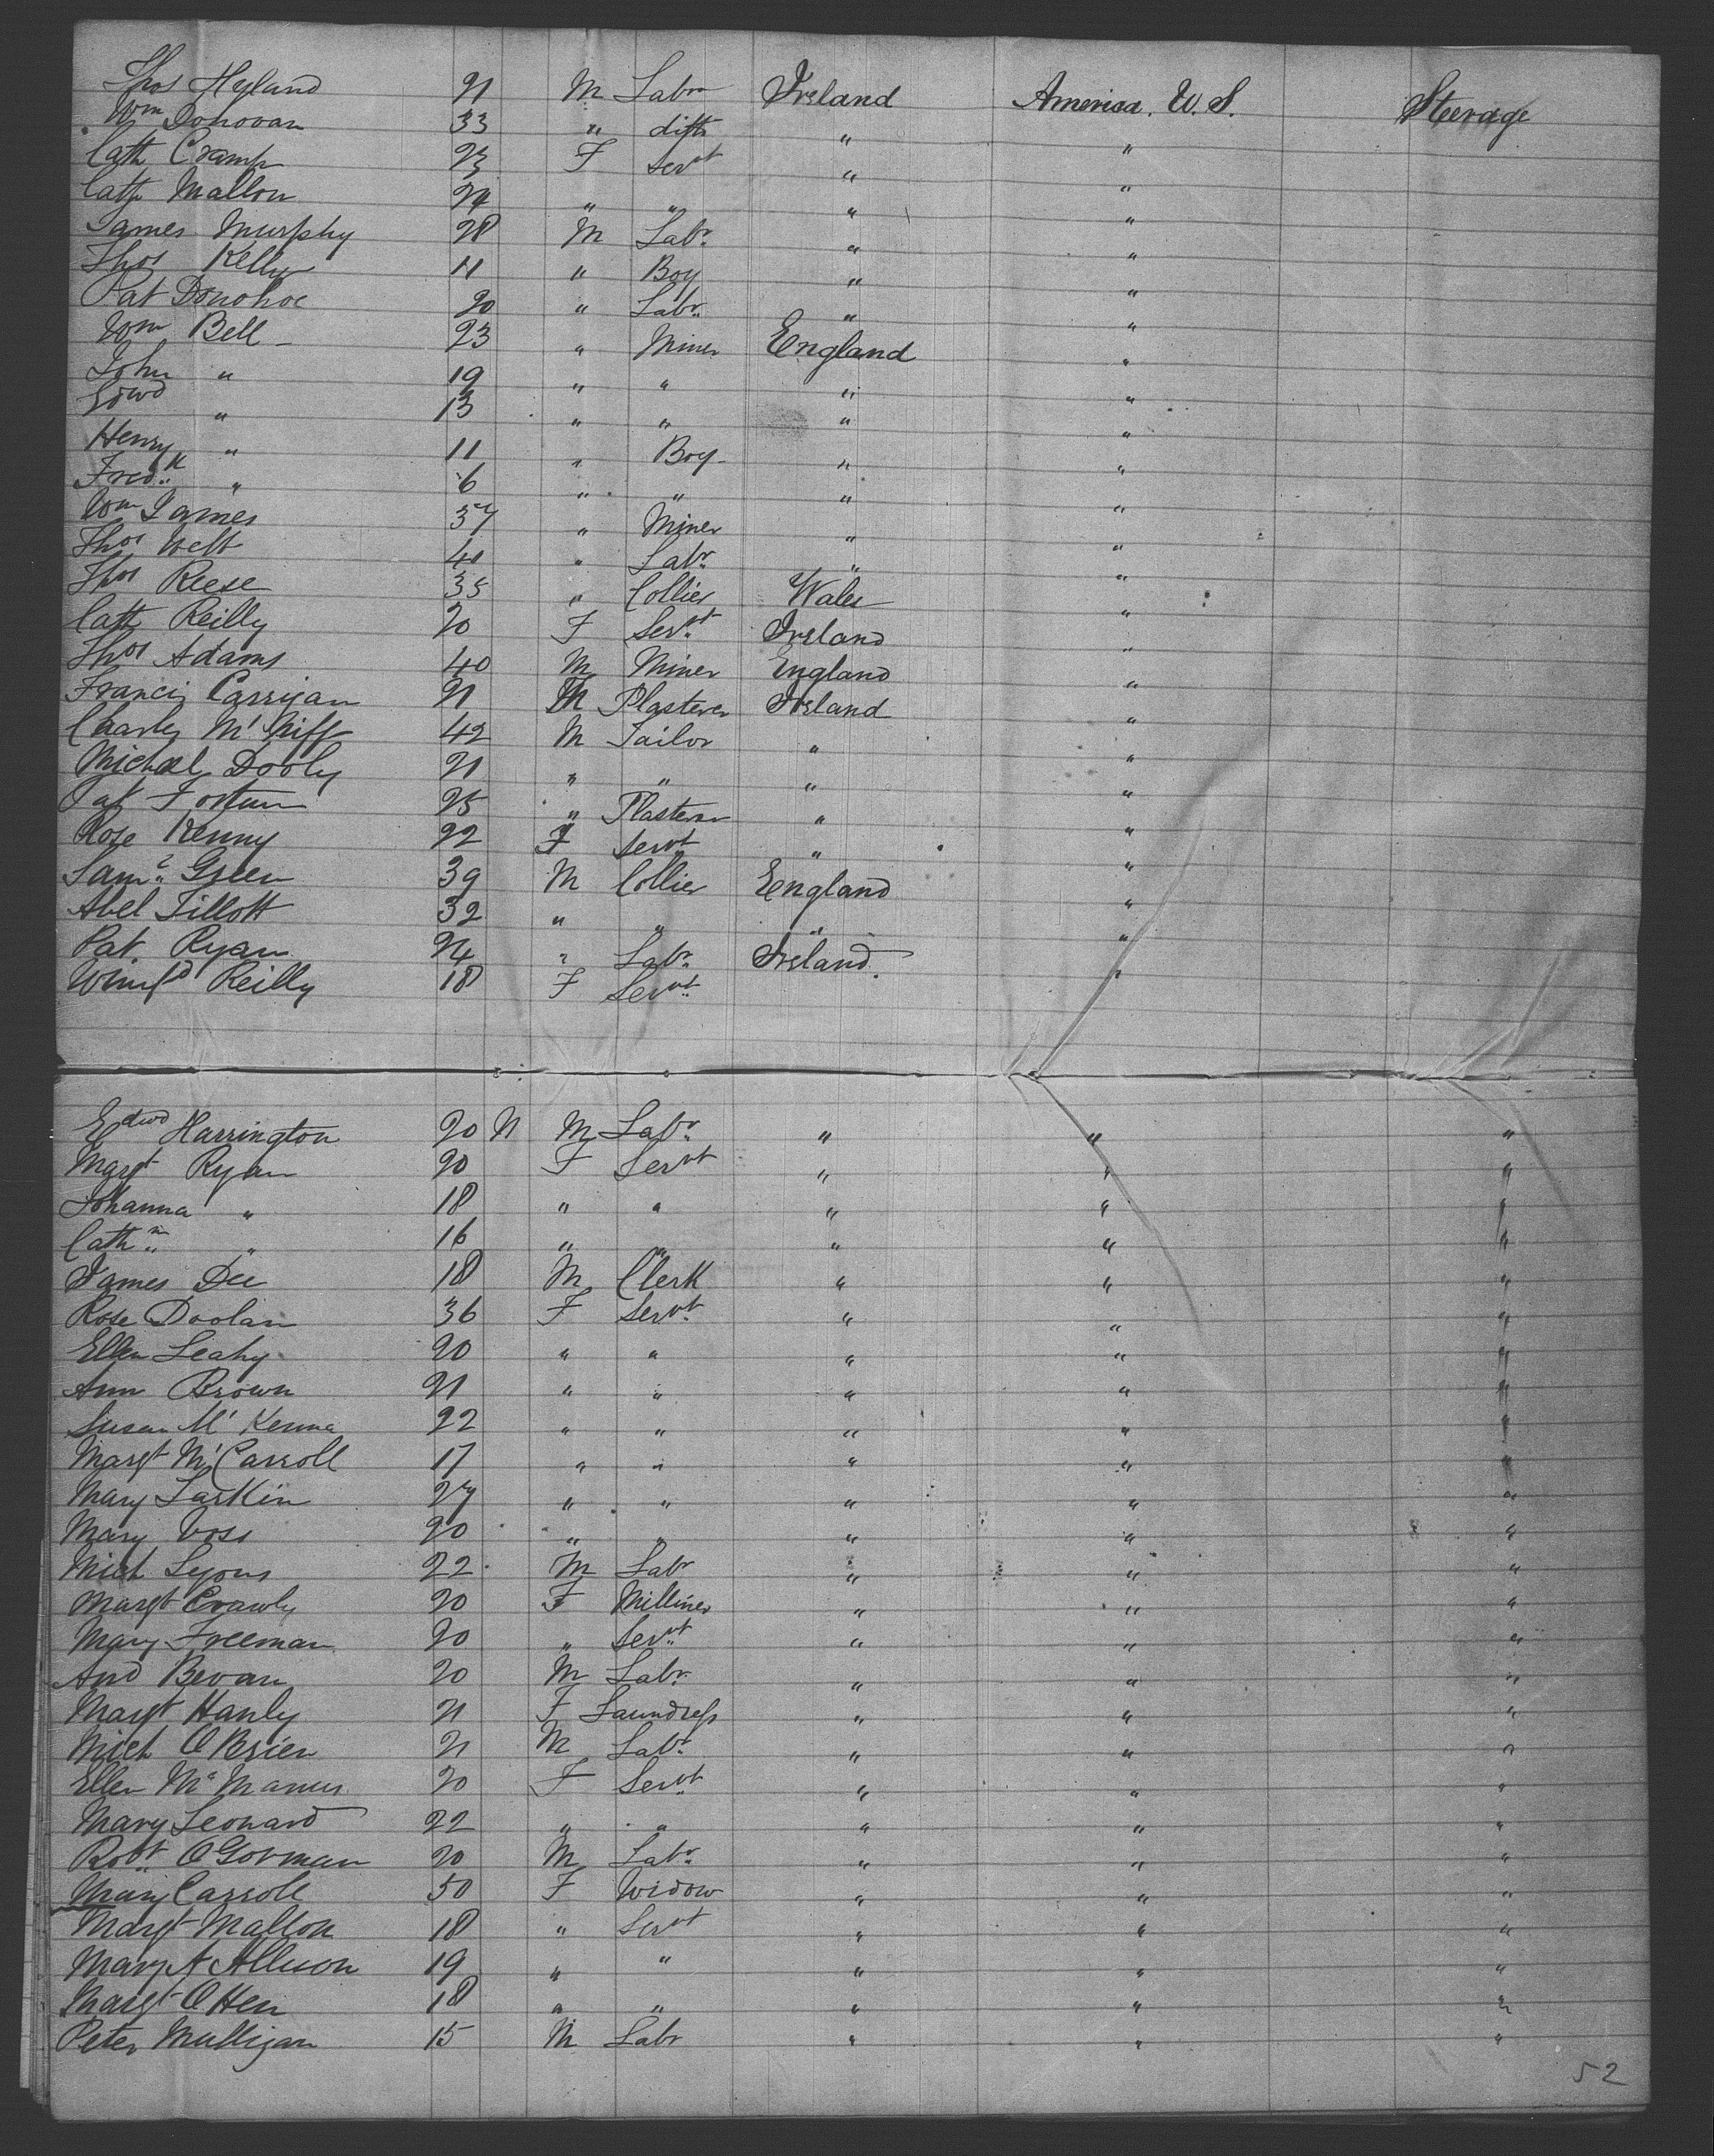 Thos Hyland 21 M Labr Ireland America. U. S. Steerage
Wm Donovan 33 " ditto " "
Cath Cramp 23 F Servt " "
Cath Mallon 24 " " " "
James Murphy 28 M Labr " "
Thos Kelly 11 " Boy " "
Pat Donohoe 20 " Labr " "
Wm Bell 23 " Miner England "
John " 19 " " " "
Edwd " 13 " " " "
Henry " 11 " Boy " "
Fredk " 6 " " " "
Wm James 37 " Miner " "
Thos Webb 40 " Labr " "
Thos Reese 35 " Collier Wales "
Cath Reilly 20 F Servt Ireland "
Thos Adams 40 M Miner England "
Francis Carrigan 21 M Plasterer Ireland "
Charles M'Niff 42 M Tailor " "
Michael Dooly 21 " " " "
Pat Fortune 25 " Plasterer " "
Rose Kenny 22 F Servt " "
Saml Green 39 M Collier England "
Abel Tillott 32 " " " "
Pat Ryan 24 " Labr Ireland. "
Winifd Reilly 18 F Servt
Edwd Harrington 20 M Labr " " "
Margt Ryan 20 F Servt " " "
Johanna " 18 " " " " "
Cathn " 16 " " " " "
James Dee 18 M Clerk " " "
Rose Doolan 36 F Servt " " "
Ellen Leahy 20 " " " " "
Ann Brown 21 " " " " "
Susan M'Kenna 22 " " " " "
Margt M'Carroll 17 " " " " "
Mary Larkin 27 " " " " "
Mary Voss 20 " " " " "
Mich Lyons 22 M Labr " " "
Margt Crawly 20 F Milliner " " "
Mary Freeman 20 " Servt " " "
And Bevan 20 M Labr " " "
Margt Hanly 21 F Laundress " " "
Mich O'Brien 21 M Labr " " "
Ellen McManus 20 F Servt " " "
Mary Leonard 22 " " " " "
Robt O'Gorman 20 M Labr " " "
Mary Carroll 50 F Widow " " "
Margt Mallon 18 " Servt " " "
Mary A Allison 19 " " " " "
Margt 18 " " " " "
Peter Mulligan 15 M Labr " " "
52